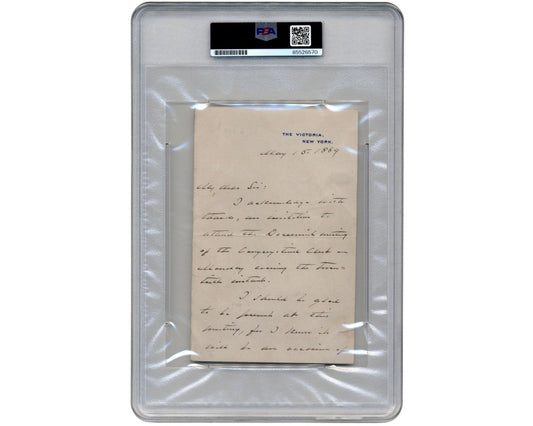 PSA
85526570
THE VICTORIA,
NEW YORK.
May 15. 1889
My dear Sir:
I acknowledge with
thanks, an invitation to
attend the Decennial meeting
of the Congregational Club on
Monday evening the Twen-
tieth instant.
I should be glad
to be present at this
meeting, for I know it
will be an occasion of